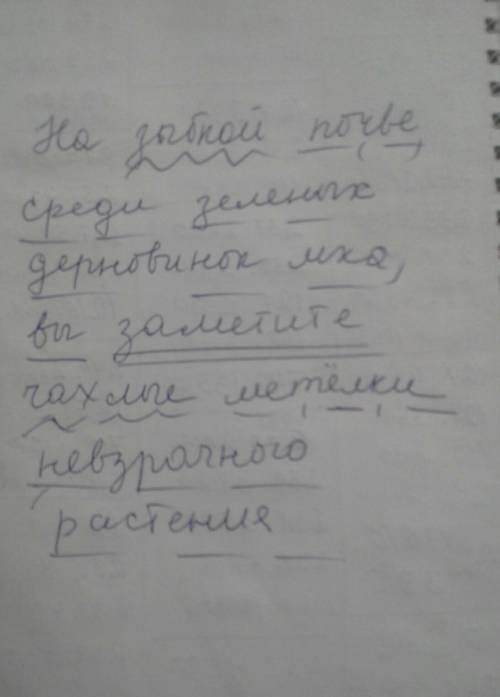 На зыбкой почве
среди зеленых
дерновинок мха,
вы заметите
чахлые метёлки
невзрачного
растения